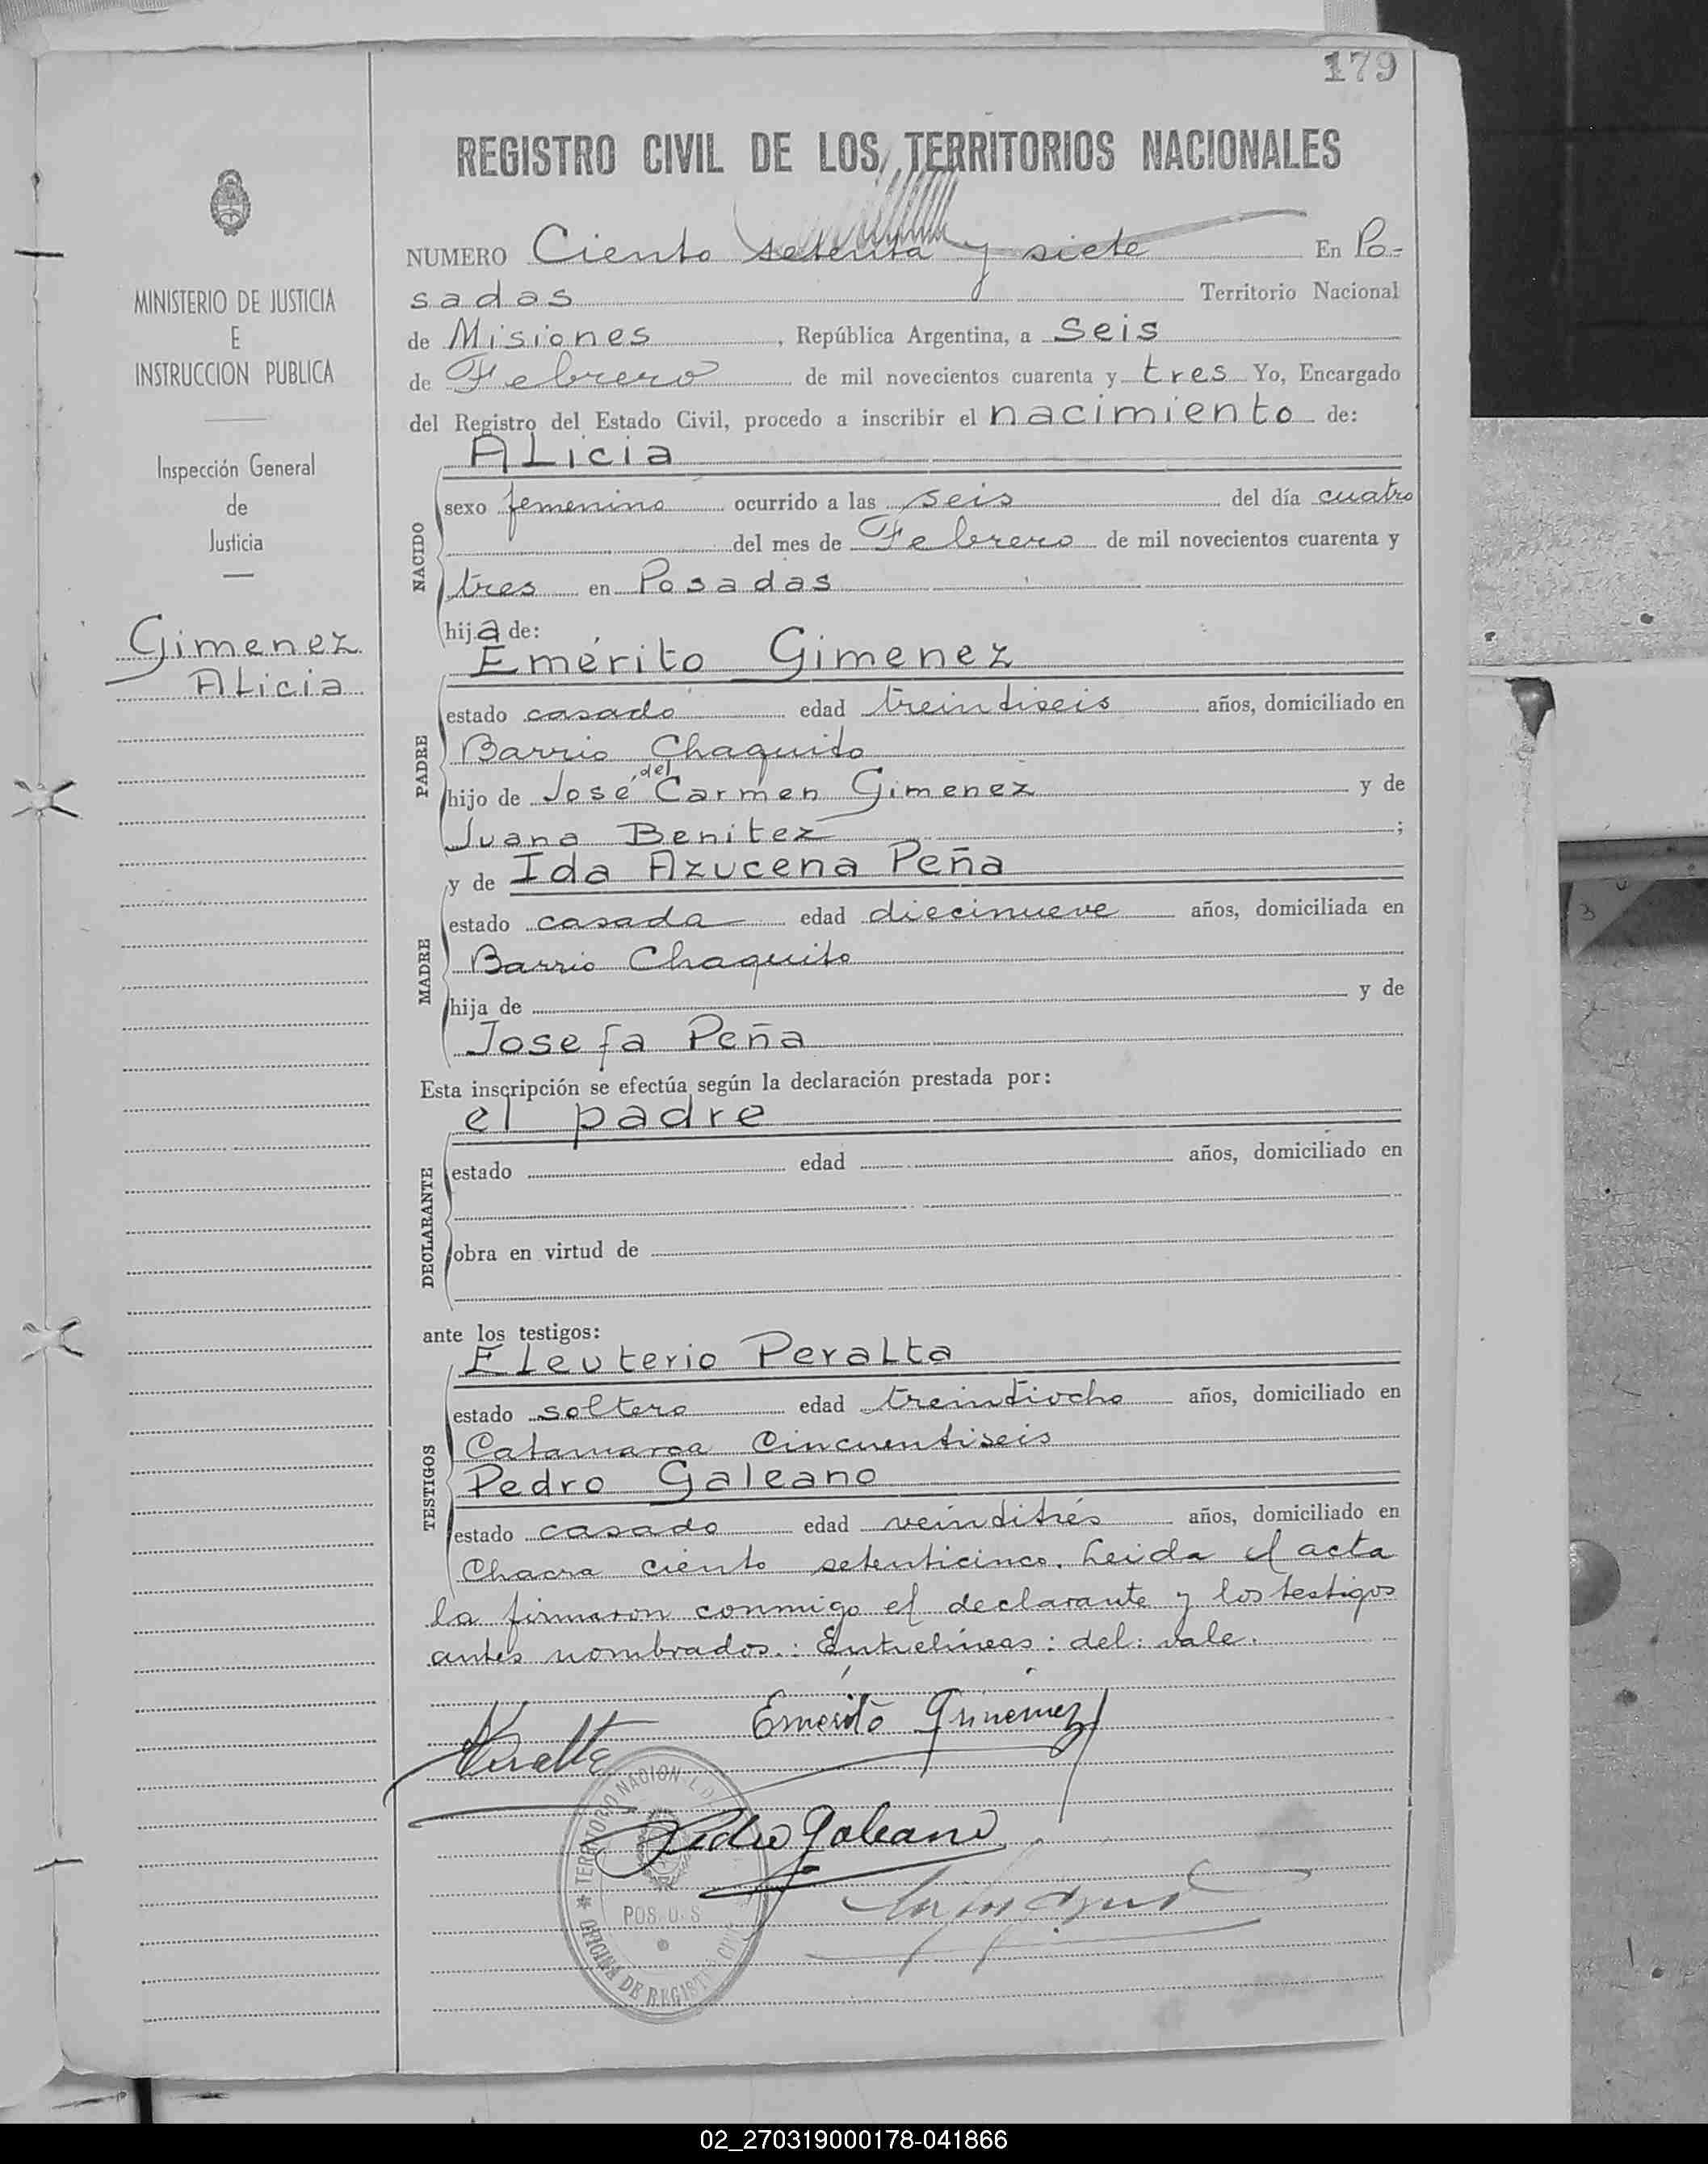 179
REGISTRO CIVIL DE LOS TERRITORIOS NACIONALES
MINISTERIO DE JUSTICIA
E
INSTRUCCION PUBLICA
Inspección General
de
Justicia
Gimenez
ALicia
NUMERO Ciento setenta y siete En Po-
sadas Territorio Nacional
de Misiones, República Argentina, a Seis
de Febrero de mil novecientos cuarenta y tres Yo, Encargado
del Registro del Estado Civil, procedo a inscribir el nacimiento de:
ALicia
NACIDO
sexo femenino ocurrido a las seis del día cuatro
del mes de Febrero de mil novecientos cuarenta y
tres en Posadas
hija de:
Emérito Gimenez
PADRE
estado casado edad treintiseis años, domiciliado en
Barrio Chaquito
del
hijo de José Carmen Gimenez y de
Juana Benitez;
y de Ida Azucena Peña
MADRE
estado casada edad diecinueve años, domiciliada en
Barrio Chaquito
hija de y de
Josefa Peña
Esta inscripción se efectúa según la declaración prestada por:
el padre
DECLARANTE
estado edad años, domiciliado en
obra en virtud de
ante los testigos:
ELeuterio PeraLta
TESTIGOS
estado soltero edad treintiocho años, domiciliado en
Catamarca Cincuentiseis
Pedro Galeano
estado casado edad veintitrés años, domiciliado en
Chacra ciento setenticinco. Leida el acta
la firmaron conmigo el declarante y los testigos
antes nombrados.: Entrelíneas: del: vale.
Emérito Gimenez
Peralta
Pedro Galeano
TERRITORIO NACIONAL
OFICINA DE REGISTRO CIVIL
02_270319000178-041866